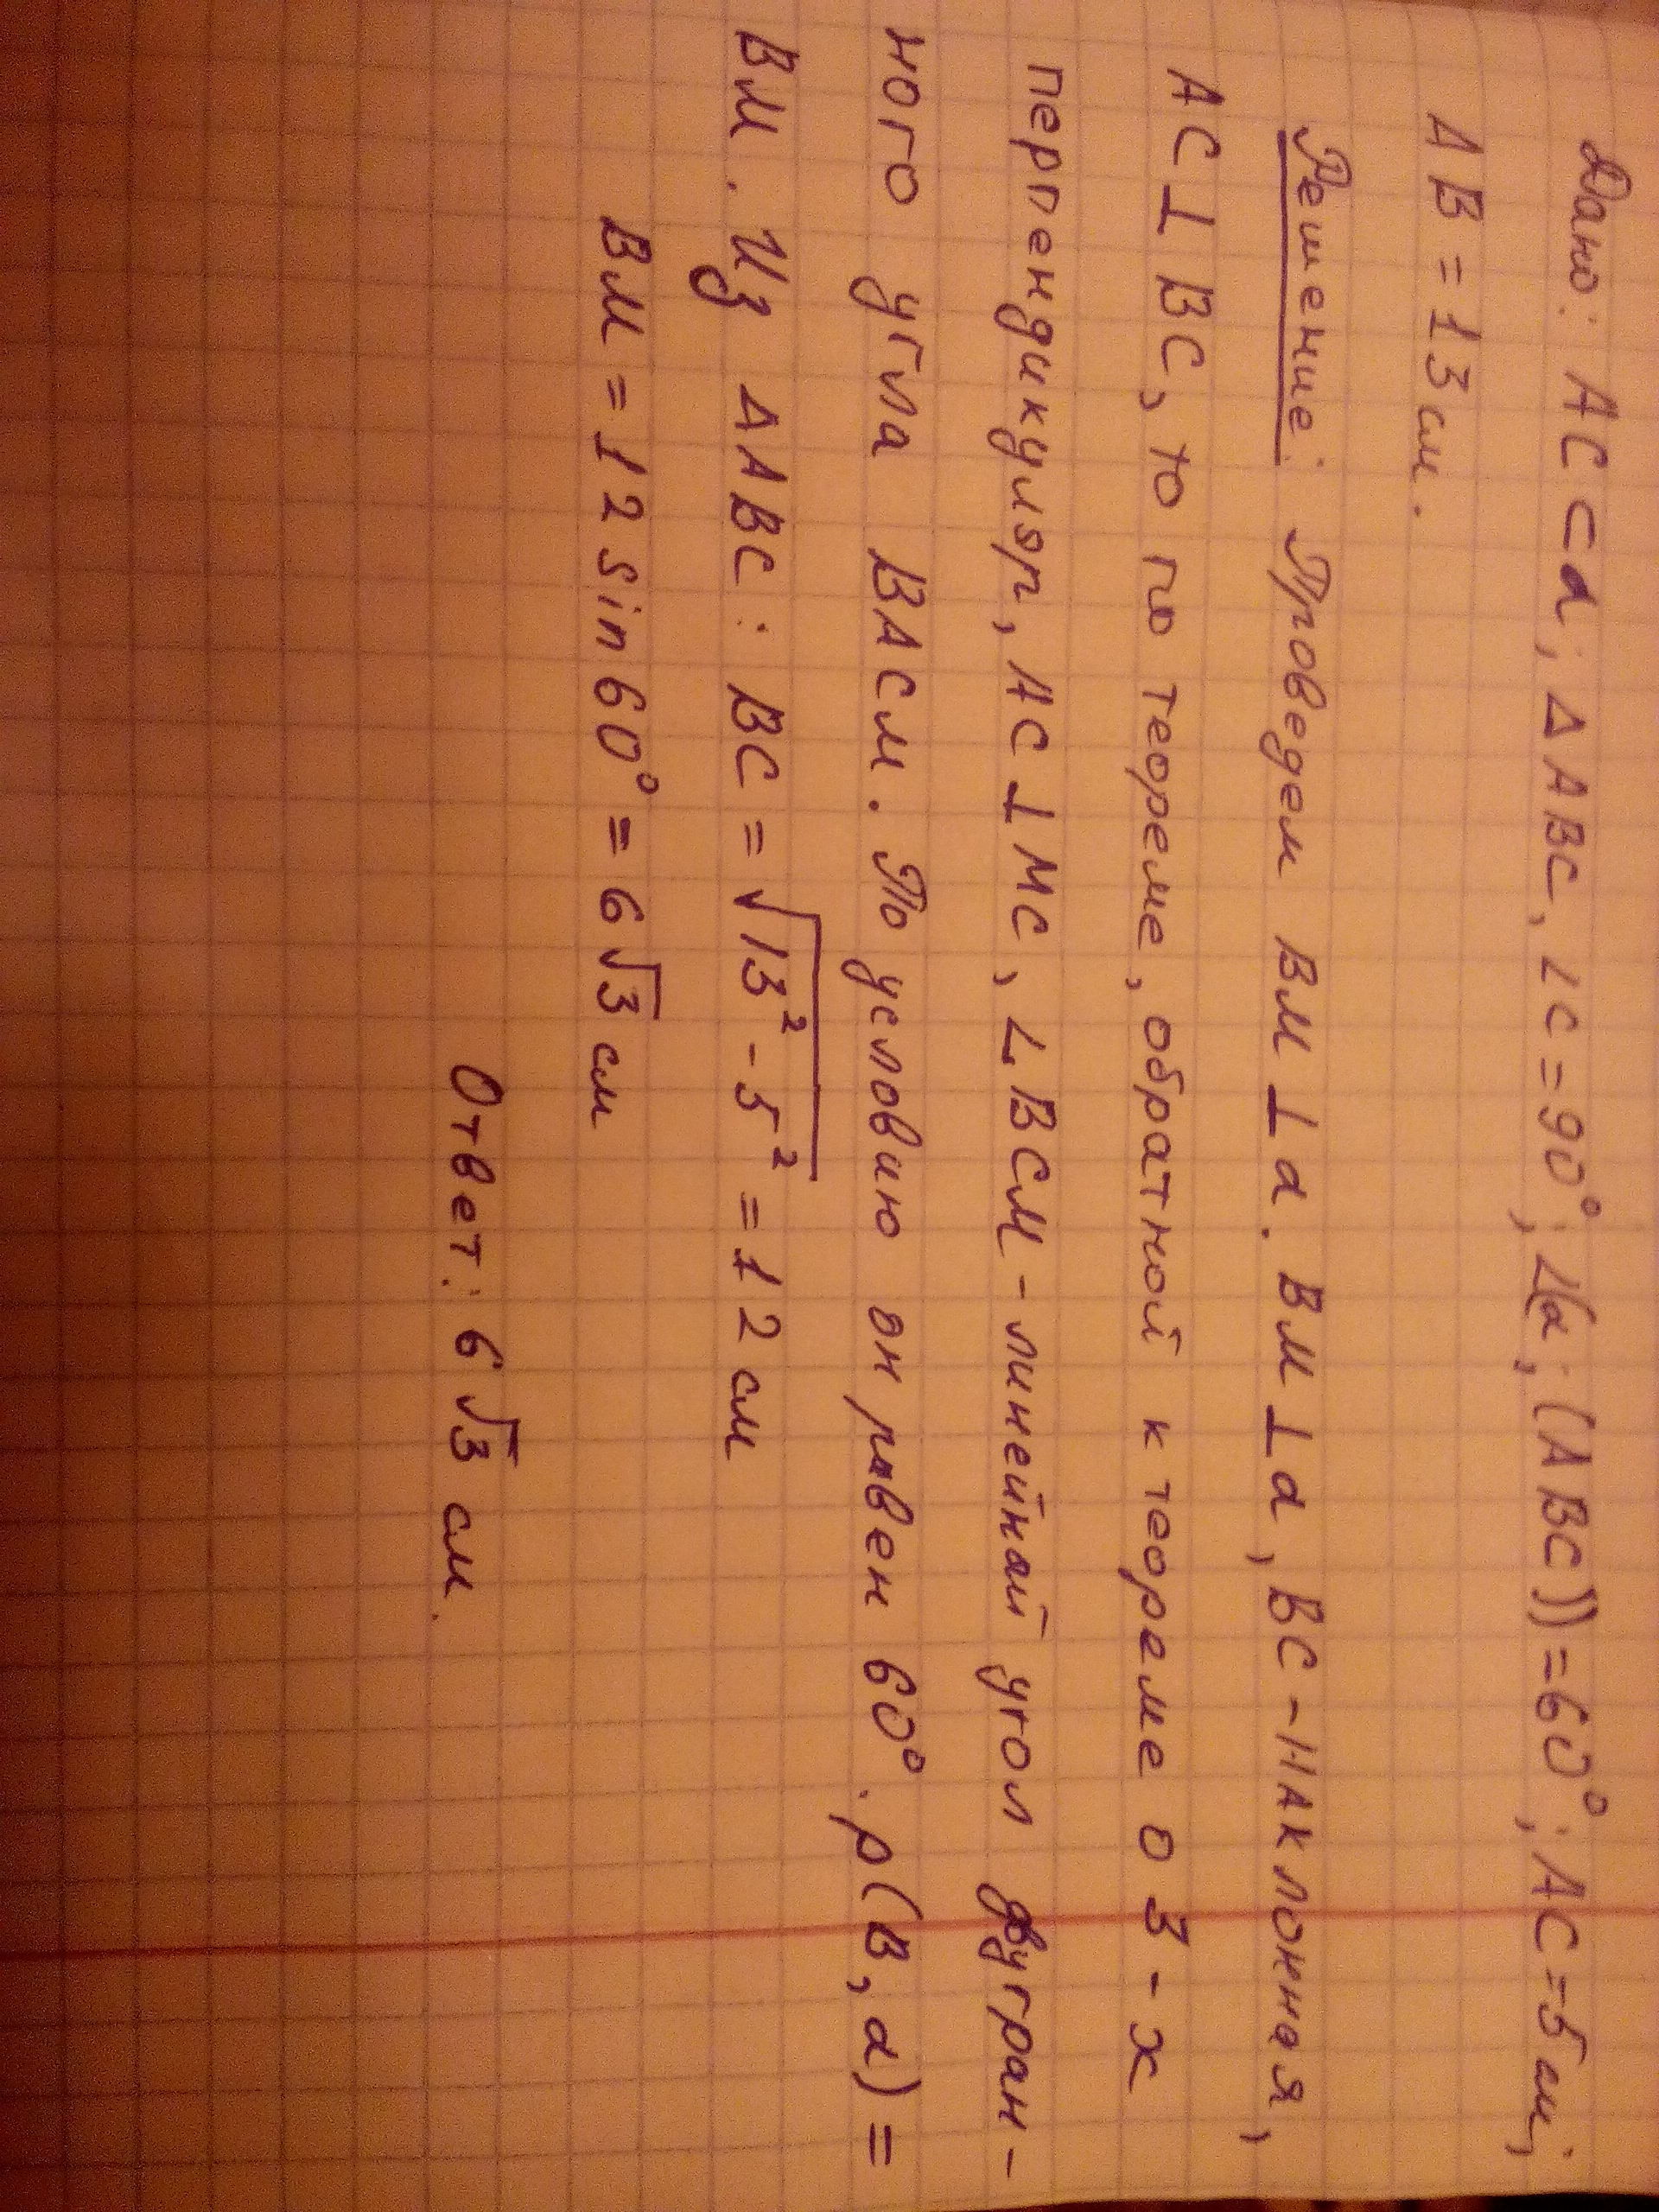 Дано: AC ⊂ α; ΔABC, ∠C = 90°; ∠(α; (ABC)) = 60°; AC = 5 см;
AB = 13 см.
Решение: Проведем BM ⊥ α. BM ⊥ α, BC - наклонная,
AC ⊥ BC, то по теореме, обратной к теореме о 3-х
перпендикуляр, AC ⊥ MC, ∠BCM - линейный угол двугран-
ного угла BACM. По условию он равен 60°. ρ(B, α) =
BM. Из ΔABC: BC = √13² - 5² = 12 см
BM = 12 sin 60° = 6√3 см
Ответ: 6√3 см.